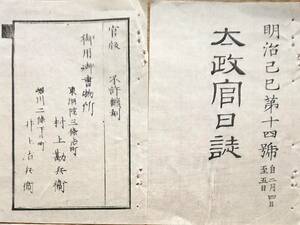 明治己巳第十四號
自二月四日
至五日
太政官日誌
官版 不許翻刻
御用御書物所
東洞院三條上町
村上勘兵衛
堀川二條下ル町
井上治兵衛